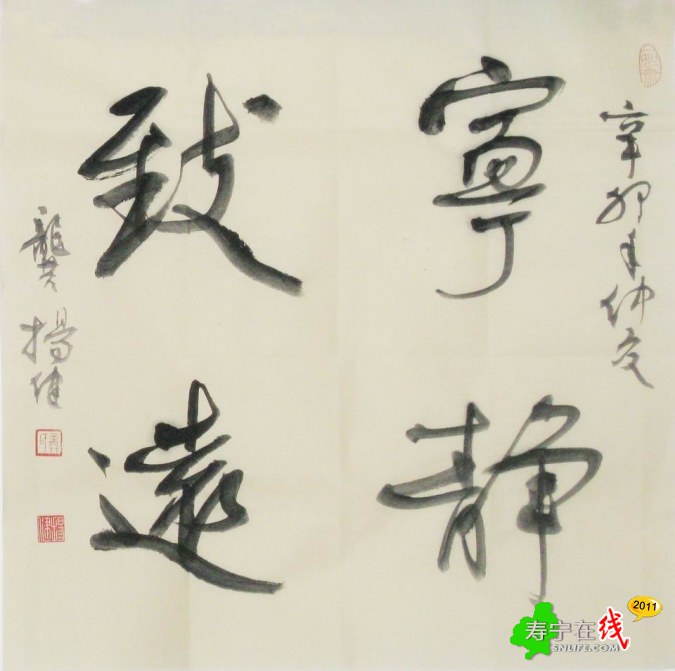 辛卯年仲夏
寧静
致遠
龔揚健
寿宁在线
SNLIFE.COM
2011